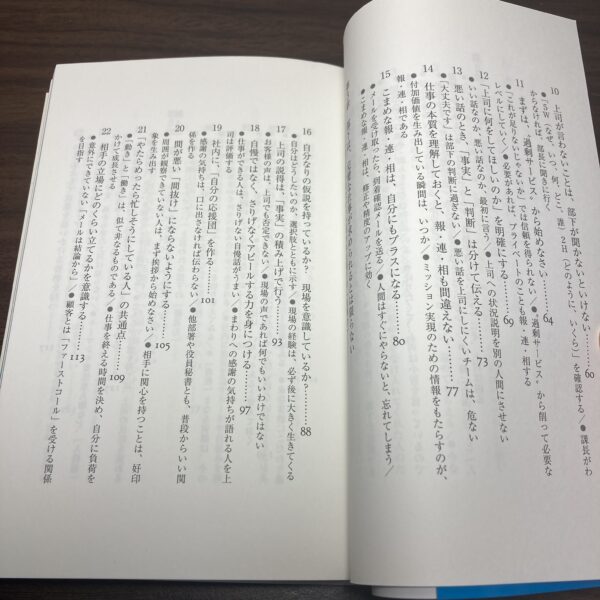 10 上司が言わないことは、部下が聞かないといけない……60
●「5W(なぜ、いつ、何、どこ、誰)2H(どのように、いくら)」を確認する/●課長がわ
からなければ、部長に聞きに行く
11 まずは、“過剰サービス”から始めなさい……64
●「これが足りない」「あれがないなか」では信頼を得られない/●“過剰サービス”から削って必要な
レベルにしていく/●必要があれば、プライベートのことも報・連・相する
12 「上司に何をしてほしいのか」を明確にする……69
●いい話なのか、悪い話なのか、最初に言う/●上司への状況説明を別の人間にさせない
13 悪い話のとき、「事実」と「判断」は分けて伝える……73
●「大丈夫です」は部下の判断に過ぎない/●悪い話を上司にしにくいチームは、危ない
14 仕事の本質を理解しておくと、報・連・相も間違えない……77
●付加価値を生み出している瞬間は、いつか/●ミッション実現のための情報をもたらすのが、
報・連・相である
15 こまめな報・連・相は、自分にもプラスになる……80
●メールを受け取ったら、到着確認メールを送る/●人間はすぐにやらないと、忘れてしまう/
●こまめな報・連・相は、修正や精度のアップに効く
16 自分なりの仮説を持っているか? 現場を意識しているか?……88
●自分はどうしたいのか、選択肢とともに示す/●現場の経験は、必ず後に大きく生きてくる
17 上司の説得は、「事実」の積み上げで行う……93
●お客様の声は、上司でも否定できない/●現場の声であれば何でもいいわけではない
18 自慢ではなく、さりげなくアピールする力を身につける……97
●仕事ができる人は、さりげない自慢話がうまい/●まわりへの感謝の気持ちが語れる人を上
司は評価する
19 社内に、「自分の応援団」を作る……101
●感謝の気持ちは、口に出さなければ伝わらない/●他部署や役員秘書とも、普段からいい関
係を作る
20 間が悪い「間抜け」にならないようにする……105
●周囲が観察できていない人は、まず挨拶から始めなさい/●相手に関心を持つことは、好印
象を生み出す
21 「やたらめったら忙しそうにしている人」の共通点……109
●「動き」と「働き」は、似て非なるものである/●仕事を終える時間を決め、自分に負荷を
かけて成長させる
22 相手の立場にどのくらい立てるかを意識する……113
●意外にできていない「メールは結論から」/●顧客とは「ファーストコール」を受ける関係
を目指す